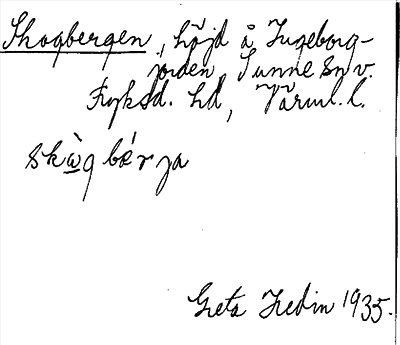 Skogbergen, höjd å Ingeborg-
jorden, Sunne sn v.
Fryksd. hd, Värml. l.
skὼg bǽrja
Greta Hedin 1935.